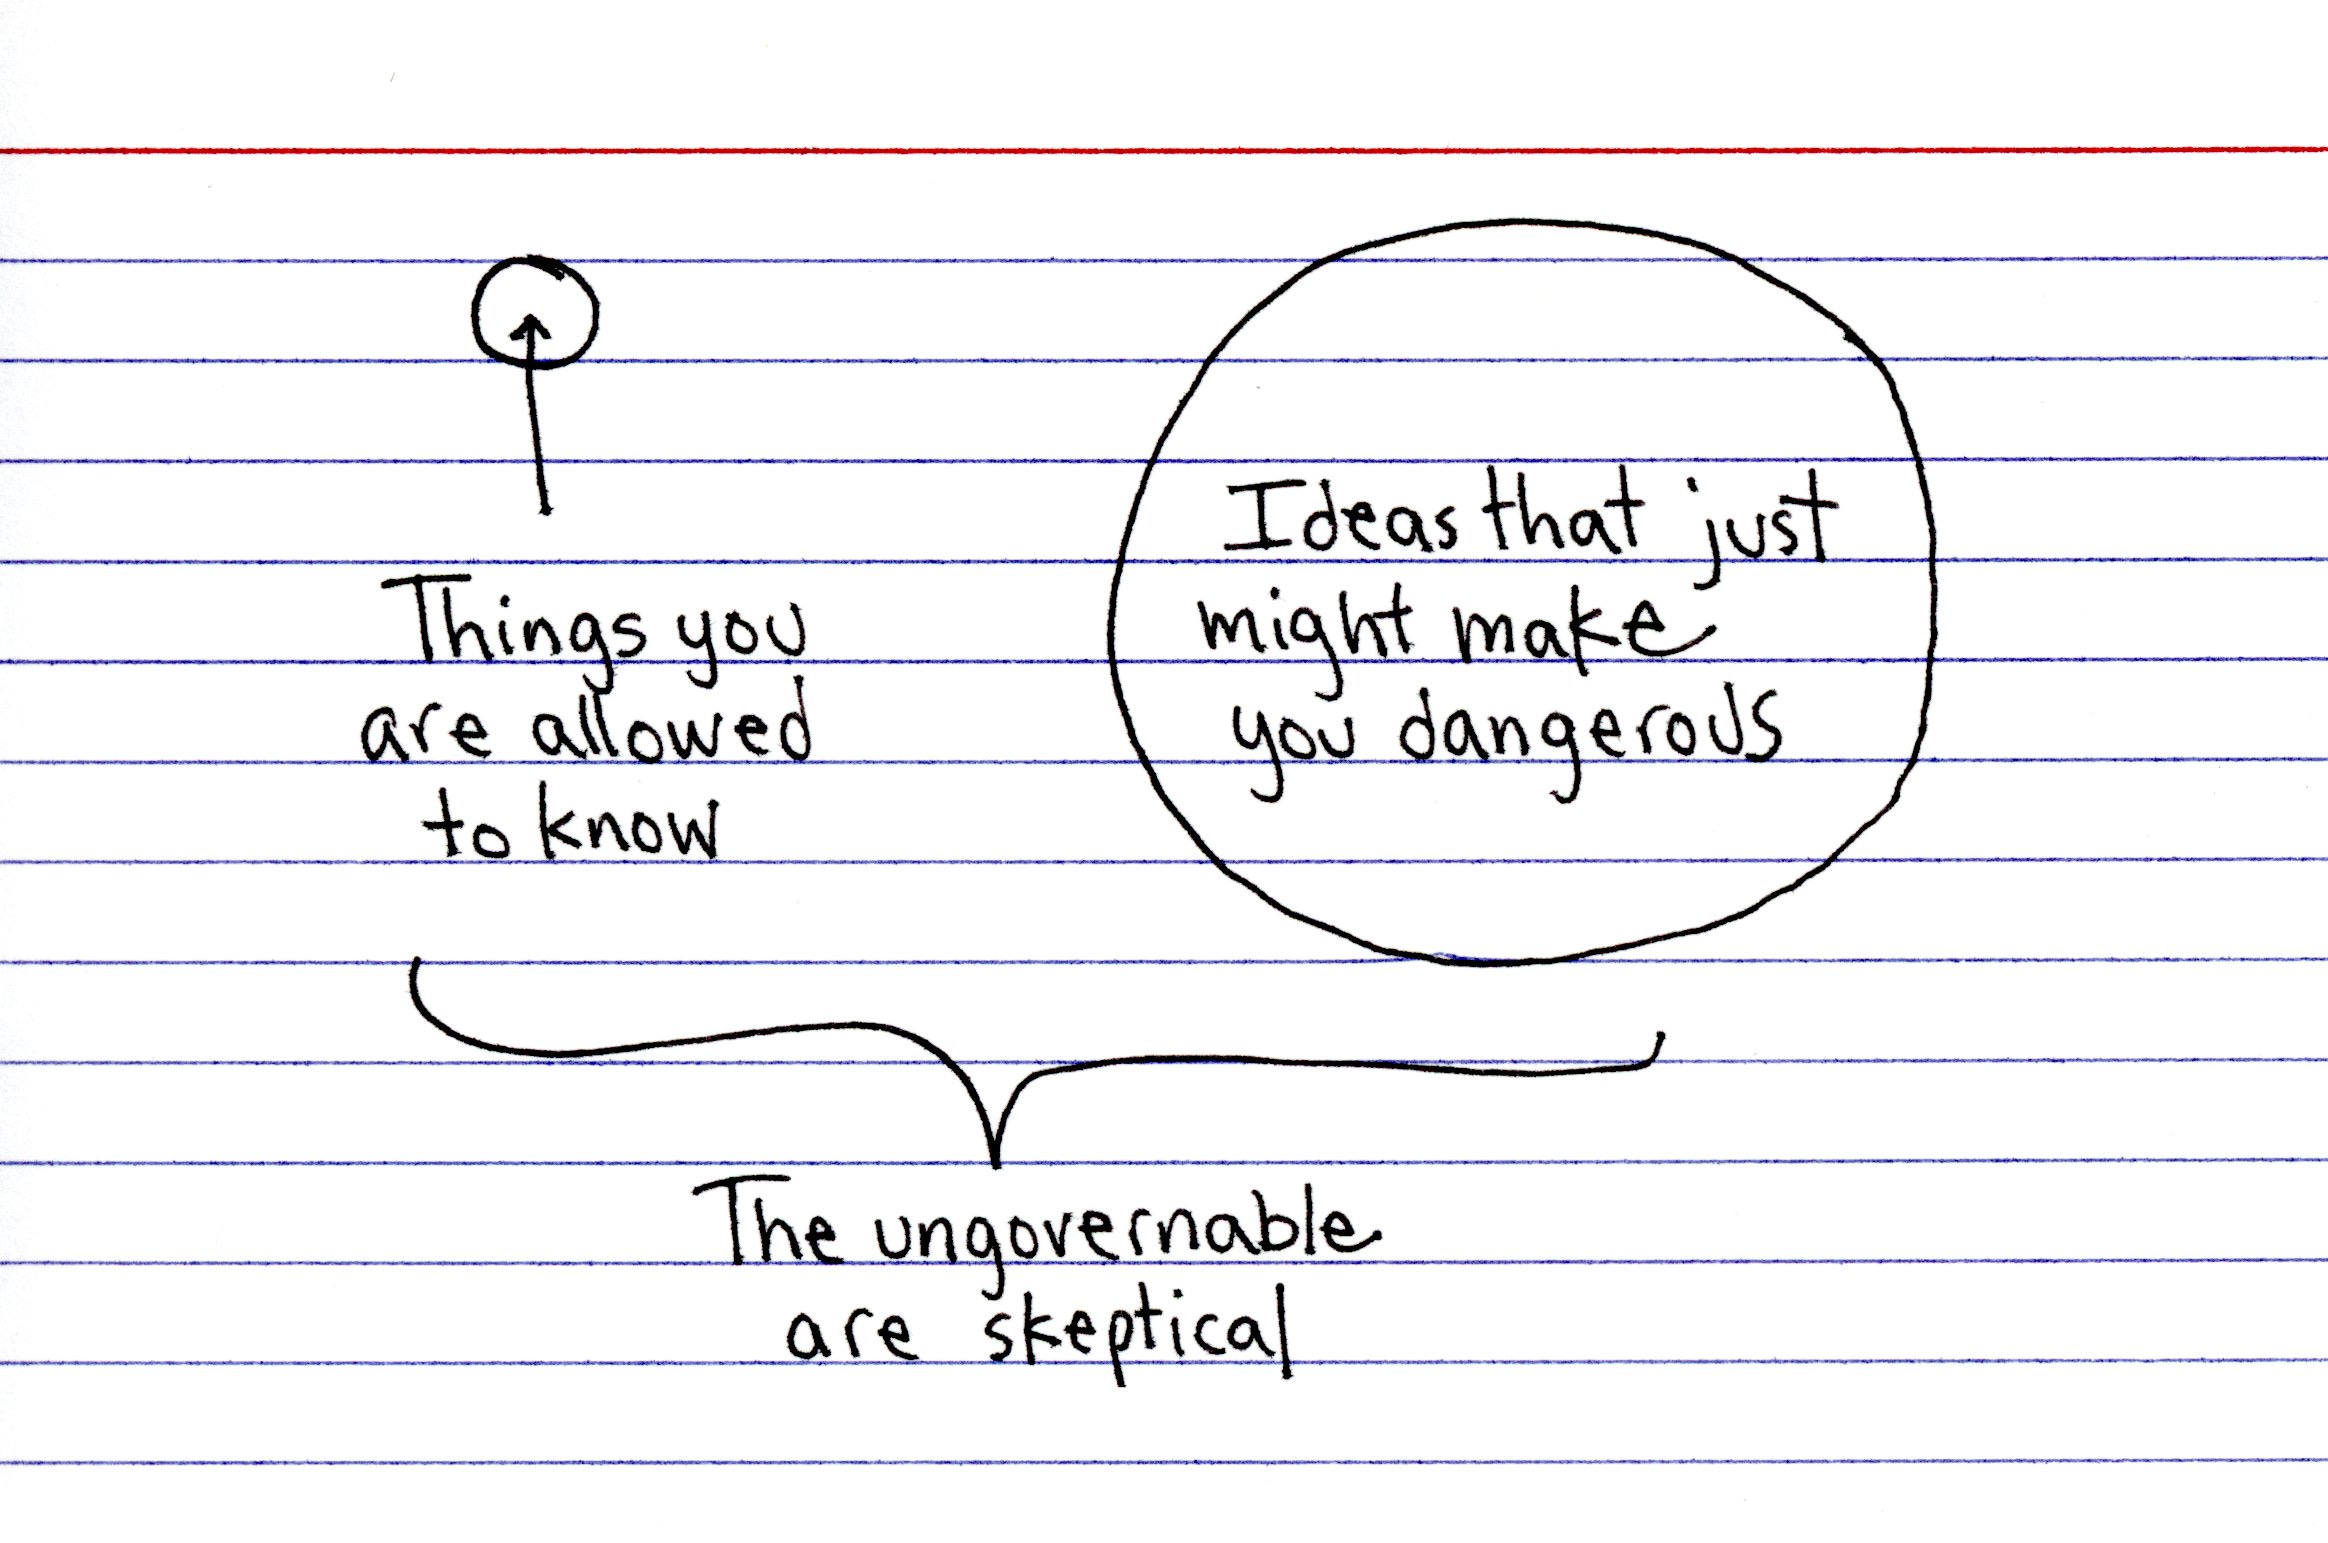 Things you
are allowed
to know
Ideas that just
might make
you dangerous
The ungovernable
are skeptical